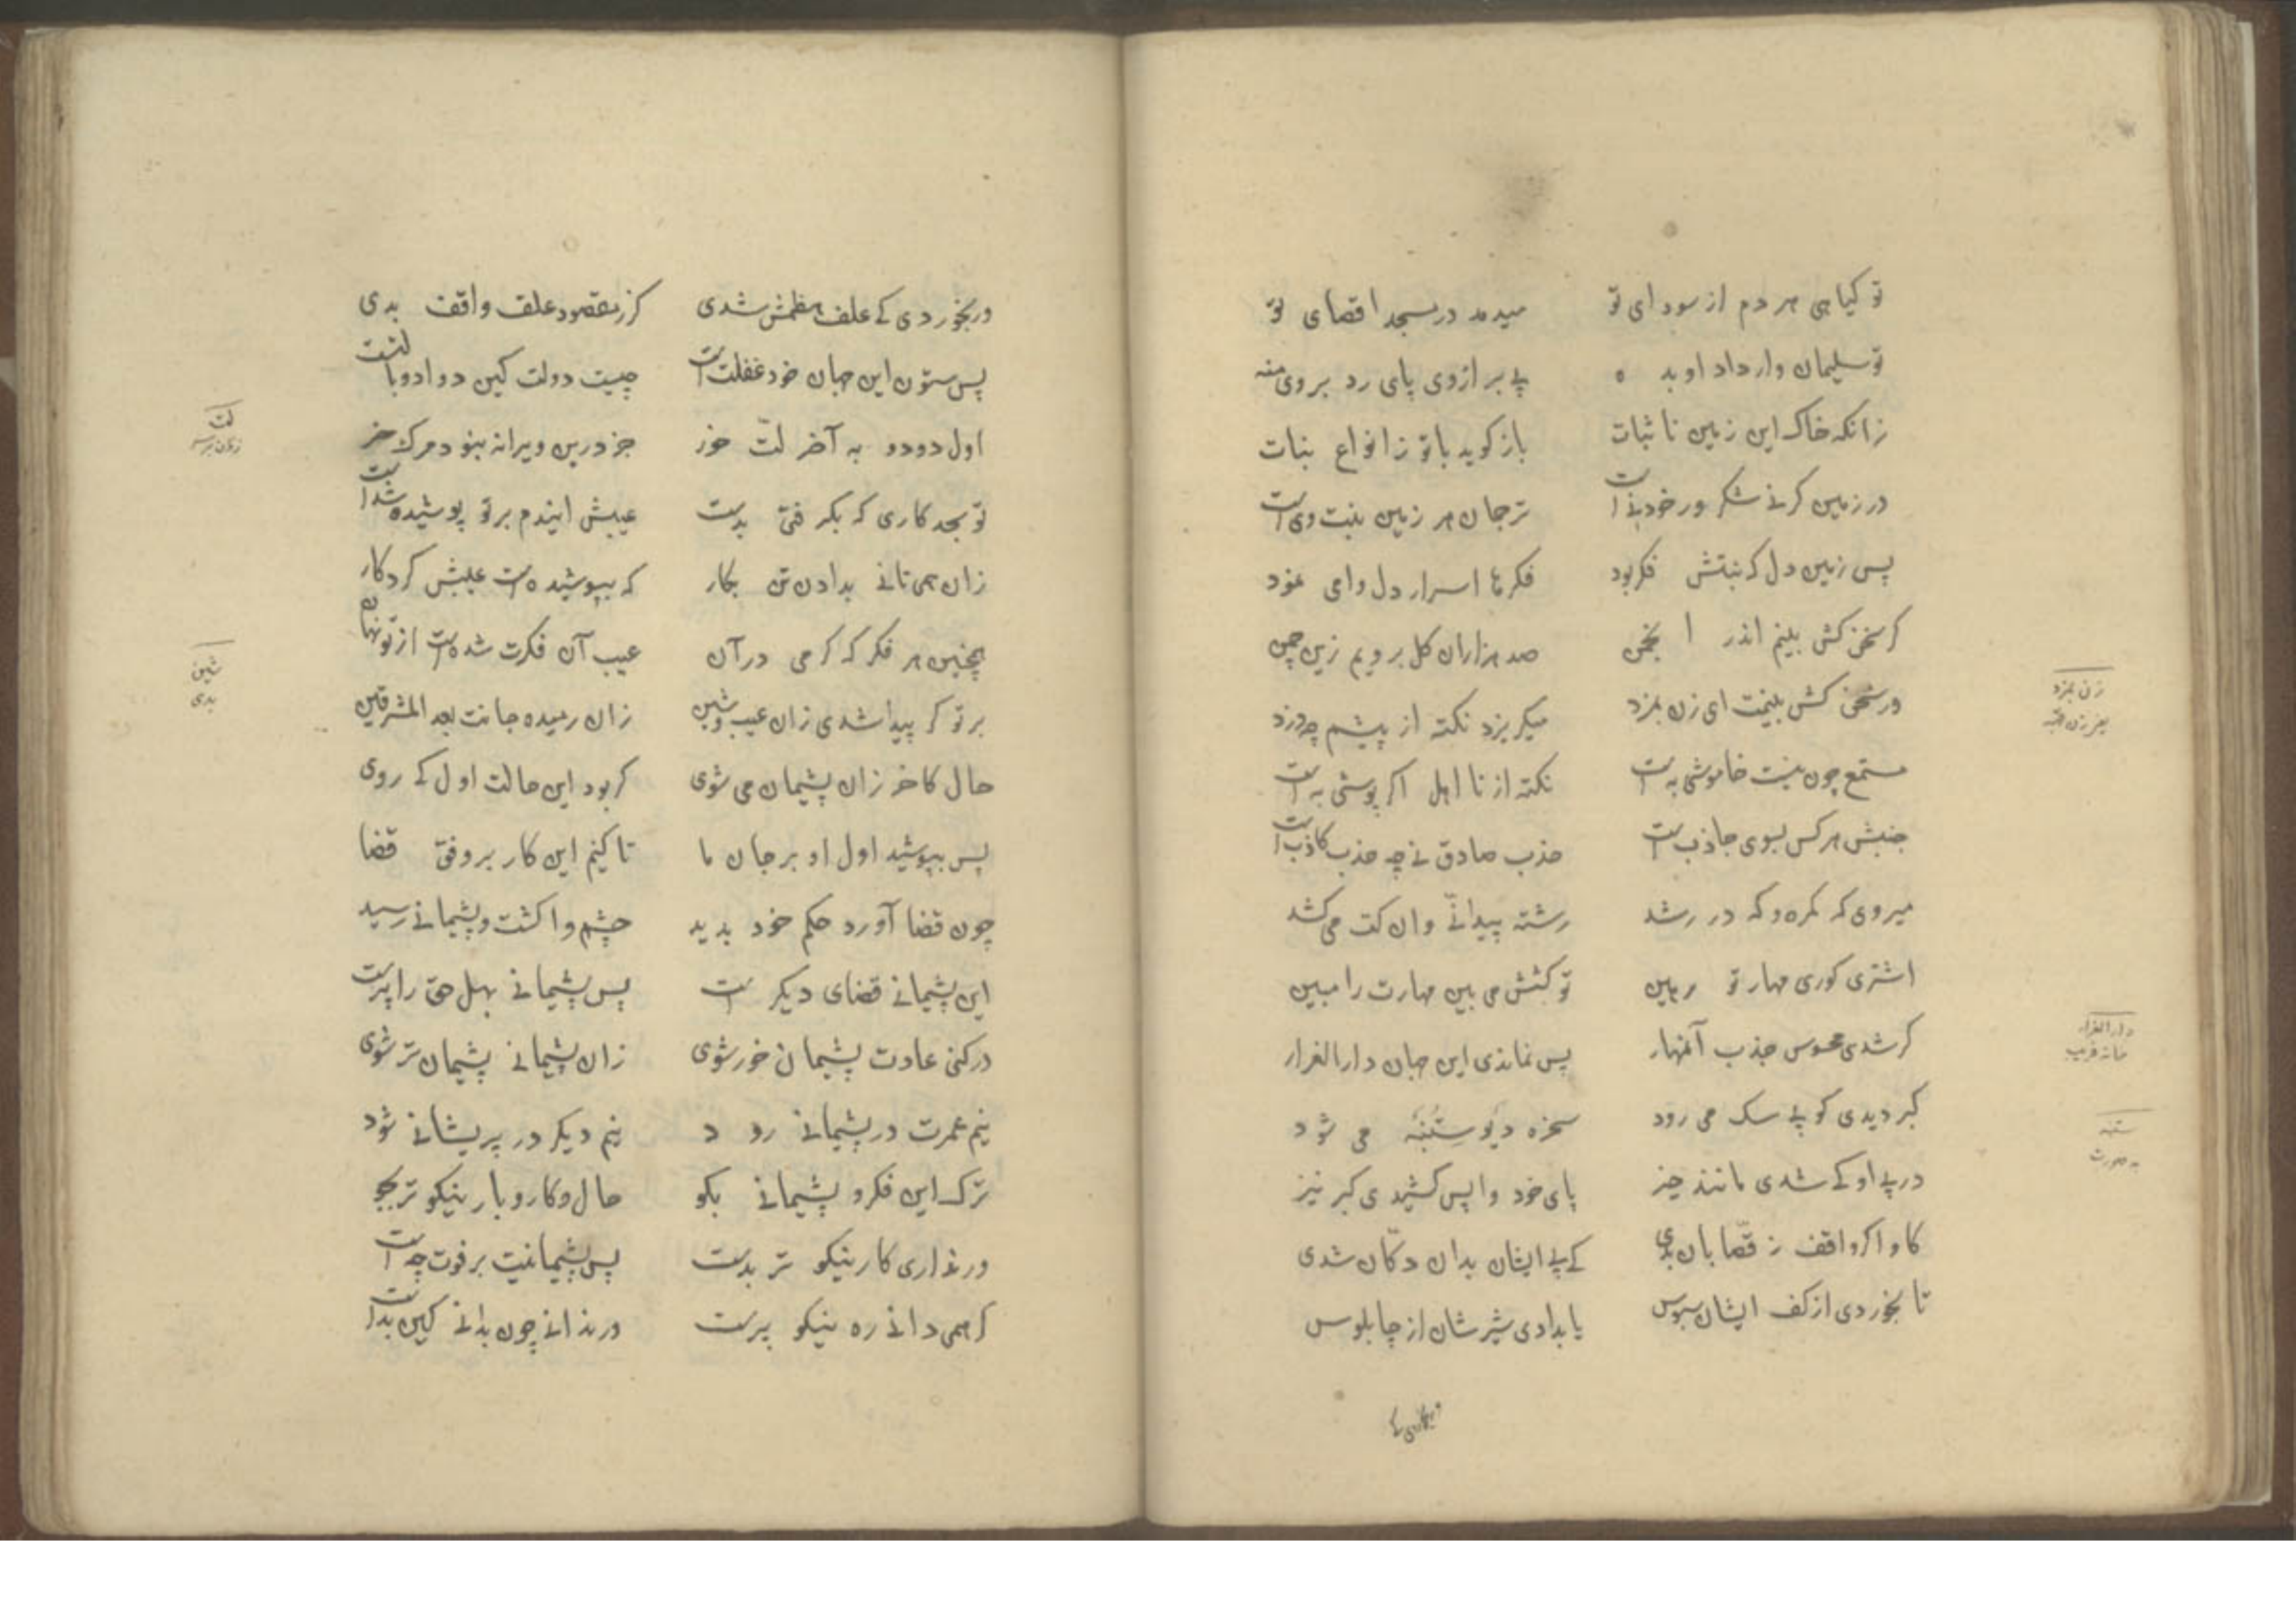 تو کیاهی هر دم از سودای تو میدمد در مسجد اقصای تو
تو سلیمان وار داد او بده پے بر از وی پای رد بر وی منه
زانکه خاک این زمین نا ثبات باز کوید با تو ز انواع نبات
در زمین کر نے شکر ور خود نے است ترجمان هر زمین نبت وی است
پس زمین دل که نبتش فکر بود فکرها اسرار دل وا می نمود
کر سخن کش بینم اندر انجمن صد هزاران کل برویم زین چمن
ور سخن کش بینمت ای زن بمزد میکریزد نکته از پیشم چو دزد
مستمع چون نیست خاموشی به است نکته از نا اهل اکر پوشی به است
جنبش هر کس بسوی جاذب است جذب صادق نے چه جذب کاذب است
میروی که کمره و که در رشد رشته پیدا نے وان کت می کشد
اشتری کوری مهار تو رهین تو کشش می بین مهارت را مبین
کر شدی محسوس جذب آنمهار پس نماندی این جهان دار الغرار
کبر دیدی کو پے سک می رود سخره دیو ستنبه می شود
در پے او کے شدی مانند حیز پای خود واپس کشیدی کبر نیز
کاو اکر واقف ز قصابان بدی کے پے ایشان بدان دکان شدی
تا بخوردی از کف ایشان سبوس یا بدادی شیرشان از چابلوس
ور بخوردی کے
زن بمزد
دار الغرار
خانه فریب
ستنبه
بد صورت
ور بخوردی کے علف هضمش شدی کر ز مقصود علف واقف بدی
پس ستون این جهان خود غفلت است چیست دولت کین دوادو با لتست
اول دو دو به آخر لت خور جز درین ویرانه نبود مرک خر
تو بجد کاری که بکرفتی بدست عیبش ایندم بر تو پوشیده شد است
زان همی تانے بدادن تن بکار که بپوشیده است عیبش کردکار
همچنین هر فکر که کرمی در آن عیب آن فکرت شده است از تو نهان
بر تو کر پیدا شدی زان عیب و شین زان رمیده جانت بعد المشرقین
حال کاخر زان پشیمان می شوی کر بود این حالت اول کے روی
پس بپوشید اول او بر جان ما تا کنیم این کار بر وفق قضا
چون قضا آورد حکم خود پدید چشم وا کشت و پشیمانے رسید
این پشیمانے قضای دیکر است پس پشیمانے بهل حق را پرست
در کنی عادت پشیمان خور شوی زان پشیمانے پشیمان تر شوی
نیم عمرت در پشیمانے رود نیم دیکر در پریشانے شود
ترک این فکر و پشیمانے بکو حال و کار و یار نیکو تر بجو
ور نداری کار نیکو تر بدست پس پشیمانیت بر فوت چه است
کر همی دانے ره نیکو پرست ور ندانے چون بدانے کین بد است
لت
شین
بدی